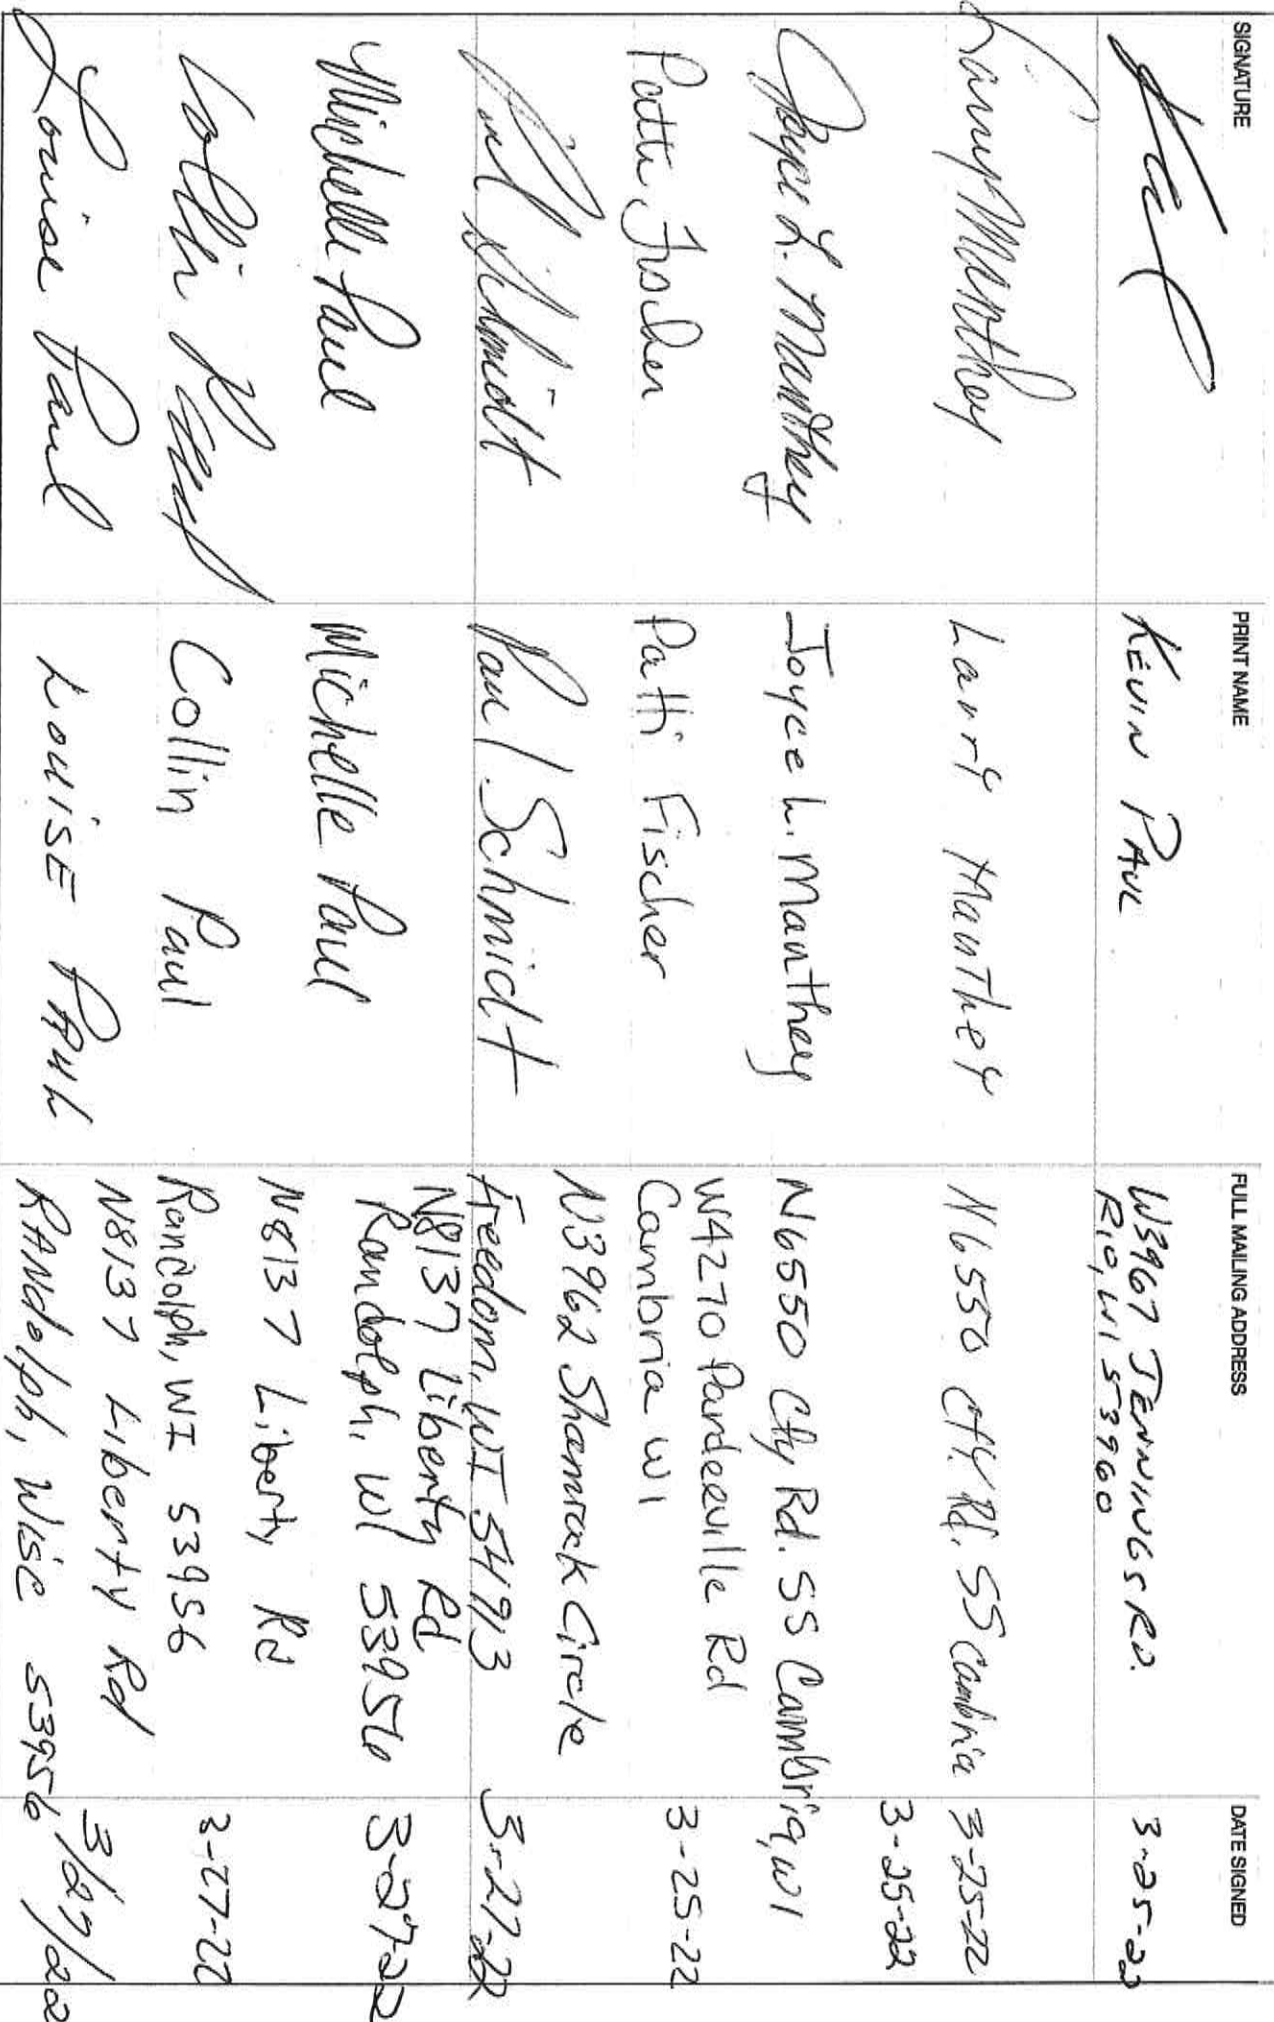 SIGNATURE PRINT NAME FULL MAILING ADDRESS DATE SIGNED
KEVIN PAUL W3967 JENNINGS RD. 3-25-22
RIO, WI 53960
Larry Manthey Larry Manthey N6550 Cty. Rd. SS Cambria 3-25-22
Joyce L. Manthey Joyce L. Manthey N6550 Cty Rd. SS Cambria, WI 3-25-22
Patti Fischer Patti Fischer W4270 Pardeeville Rd 3-25-22
Cambria WI
Paul Schmidt Paul Schmidt N3962 Shamrock Circle 3-27-22
Freedom, WI 54913
Michelle Paul Michelle Paul N8137 Liberty Rd 3-27-22
Randolph, WI 53956
Collin Paul Collin Paul N8137 Liberty Rd 3-27-22
Randolph, WI 53956
Louise Paul LOUISE PAUL N8137 Liberty Rd 3/27/22
RANdolph, Wisc 53956